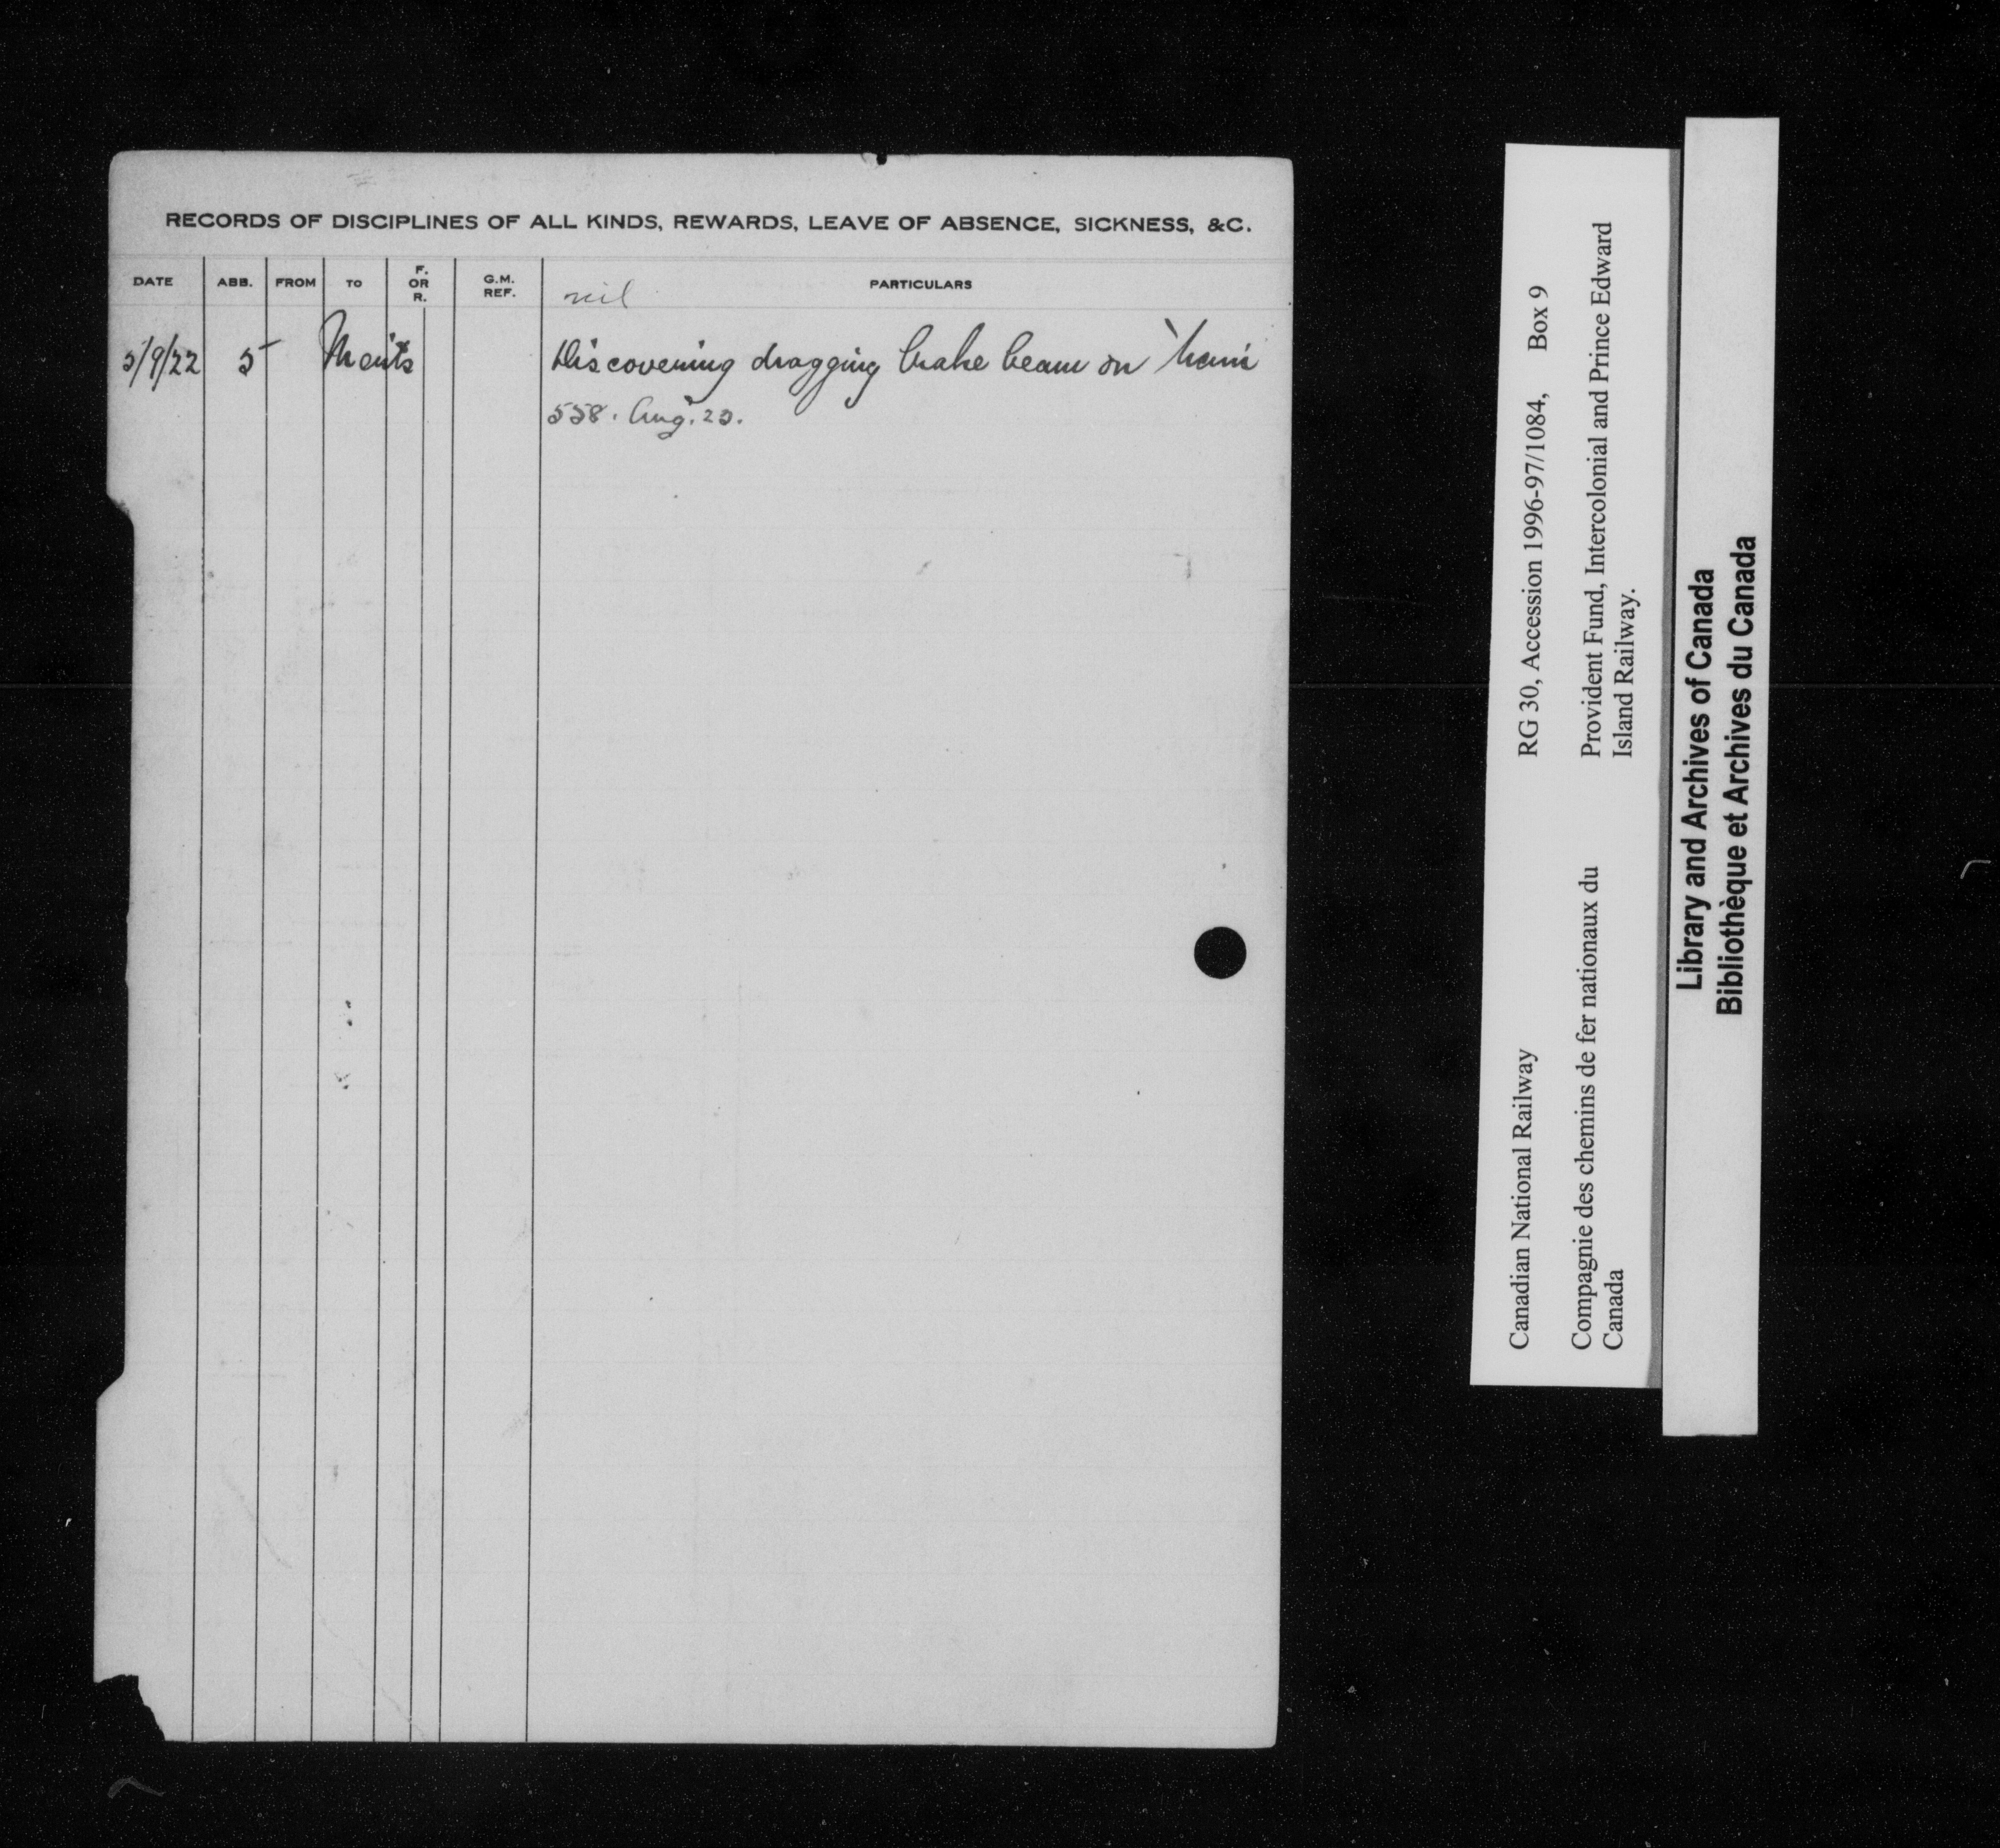 RECORDS OF DISCIPLINES OF ALL KINDS, REWARDS, LEAVE OF ABSENCE, SICKNESS, &C.
DATE ABB. FROM TO F. OR R. G.M. REF. PARTICULARS
nil
5/9/22 5 Merits Discovering dragging brake beam on train
558. Aug. 23.
Canadian National Railway RG 30, Accession 1996-97/1084, Box 9
Compagnie des chemins de fer nationaux du Provident Fund, Intercolonial and Prince Edward
Canada Island Railway.
Library and Archives of Canada
Bibliothèque et Archives du Canada